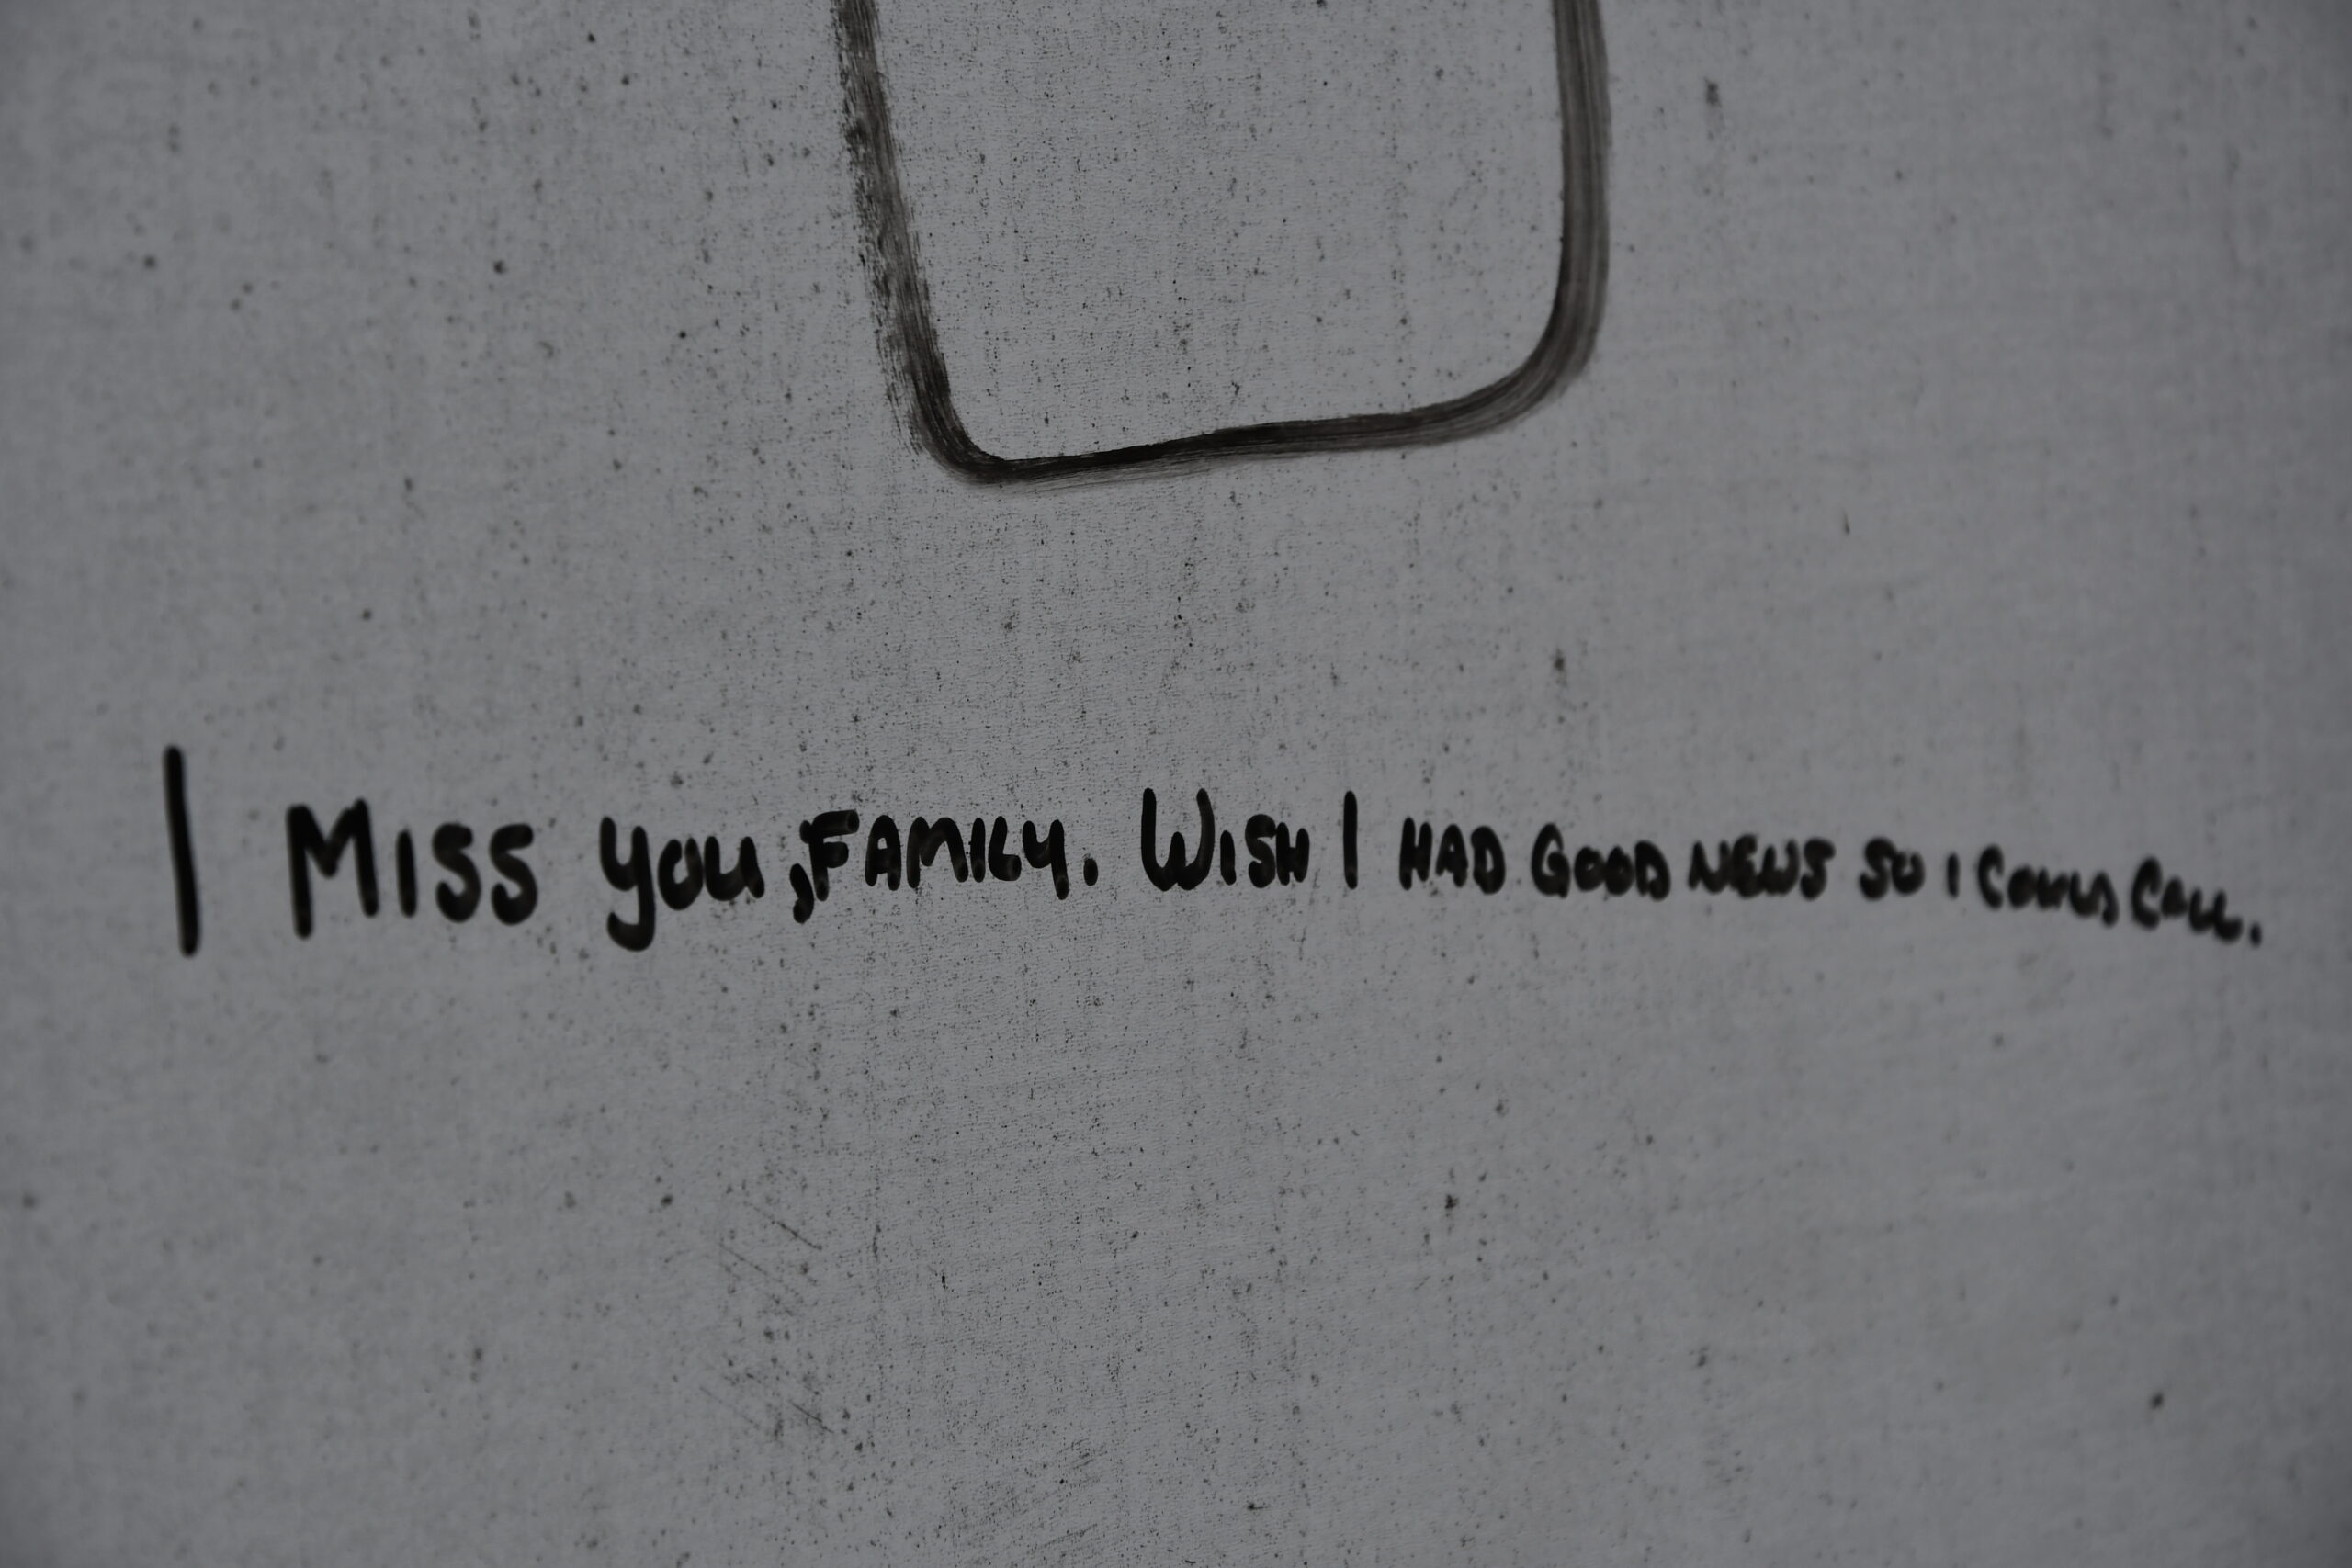 I MISS YOU, FAMILY. WISH I HAD GOOD NEWS SO I COULD CALL.